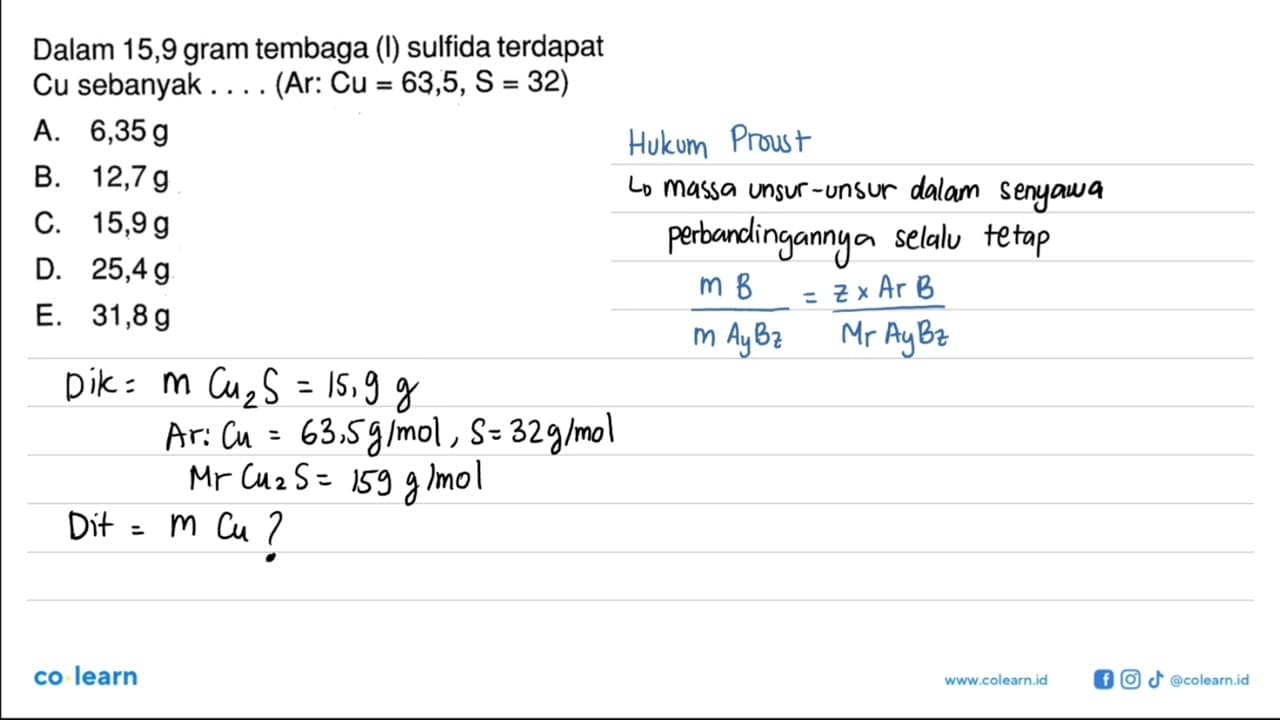 Dalam 15,9 gram tembaga (I) sulfida terdapat
Cu sebanyak . . . . (Ar: Cu = 63,5, S = 32)
A. 6,35 g
B. 12,7 g
C. 15,9 g
D. 25,4 g
E. 31,8 g
Hukum Proust
↳ massa unsur-unsur dalam senyawa
perbandingannya selalu tetap
m B / m AyBz = z x Ar B / Mr AyBz
Dik = m Cu₂S = 15,9 g
Ar: Cu = 63,5 g/mol, S = 32 g/mol
Mr Cu₂S = 159 g/mol
Dit = m Cu ?
co learn
www.colearn.id
@colearn.id